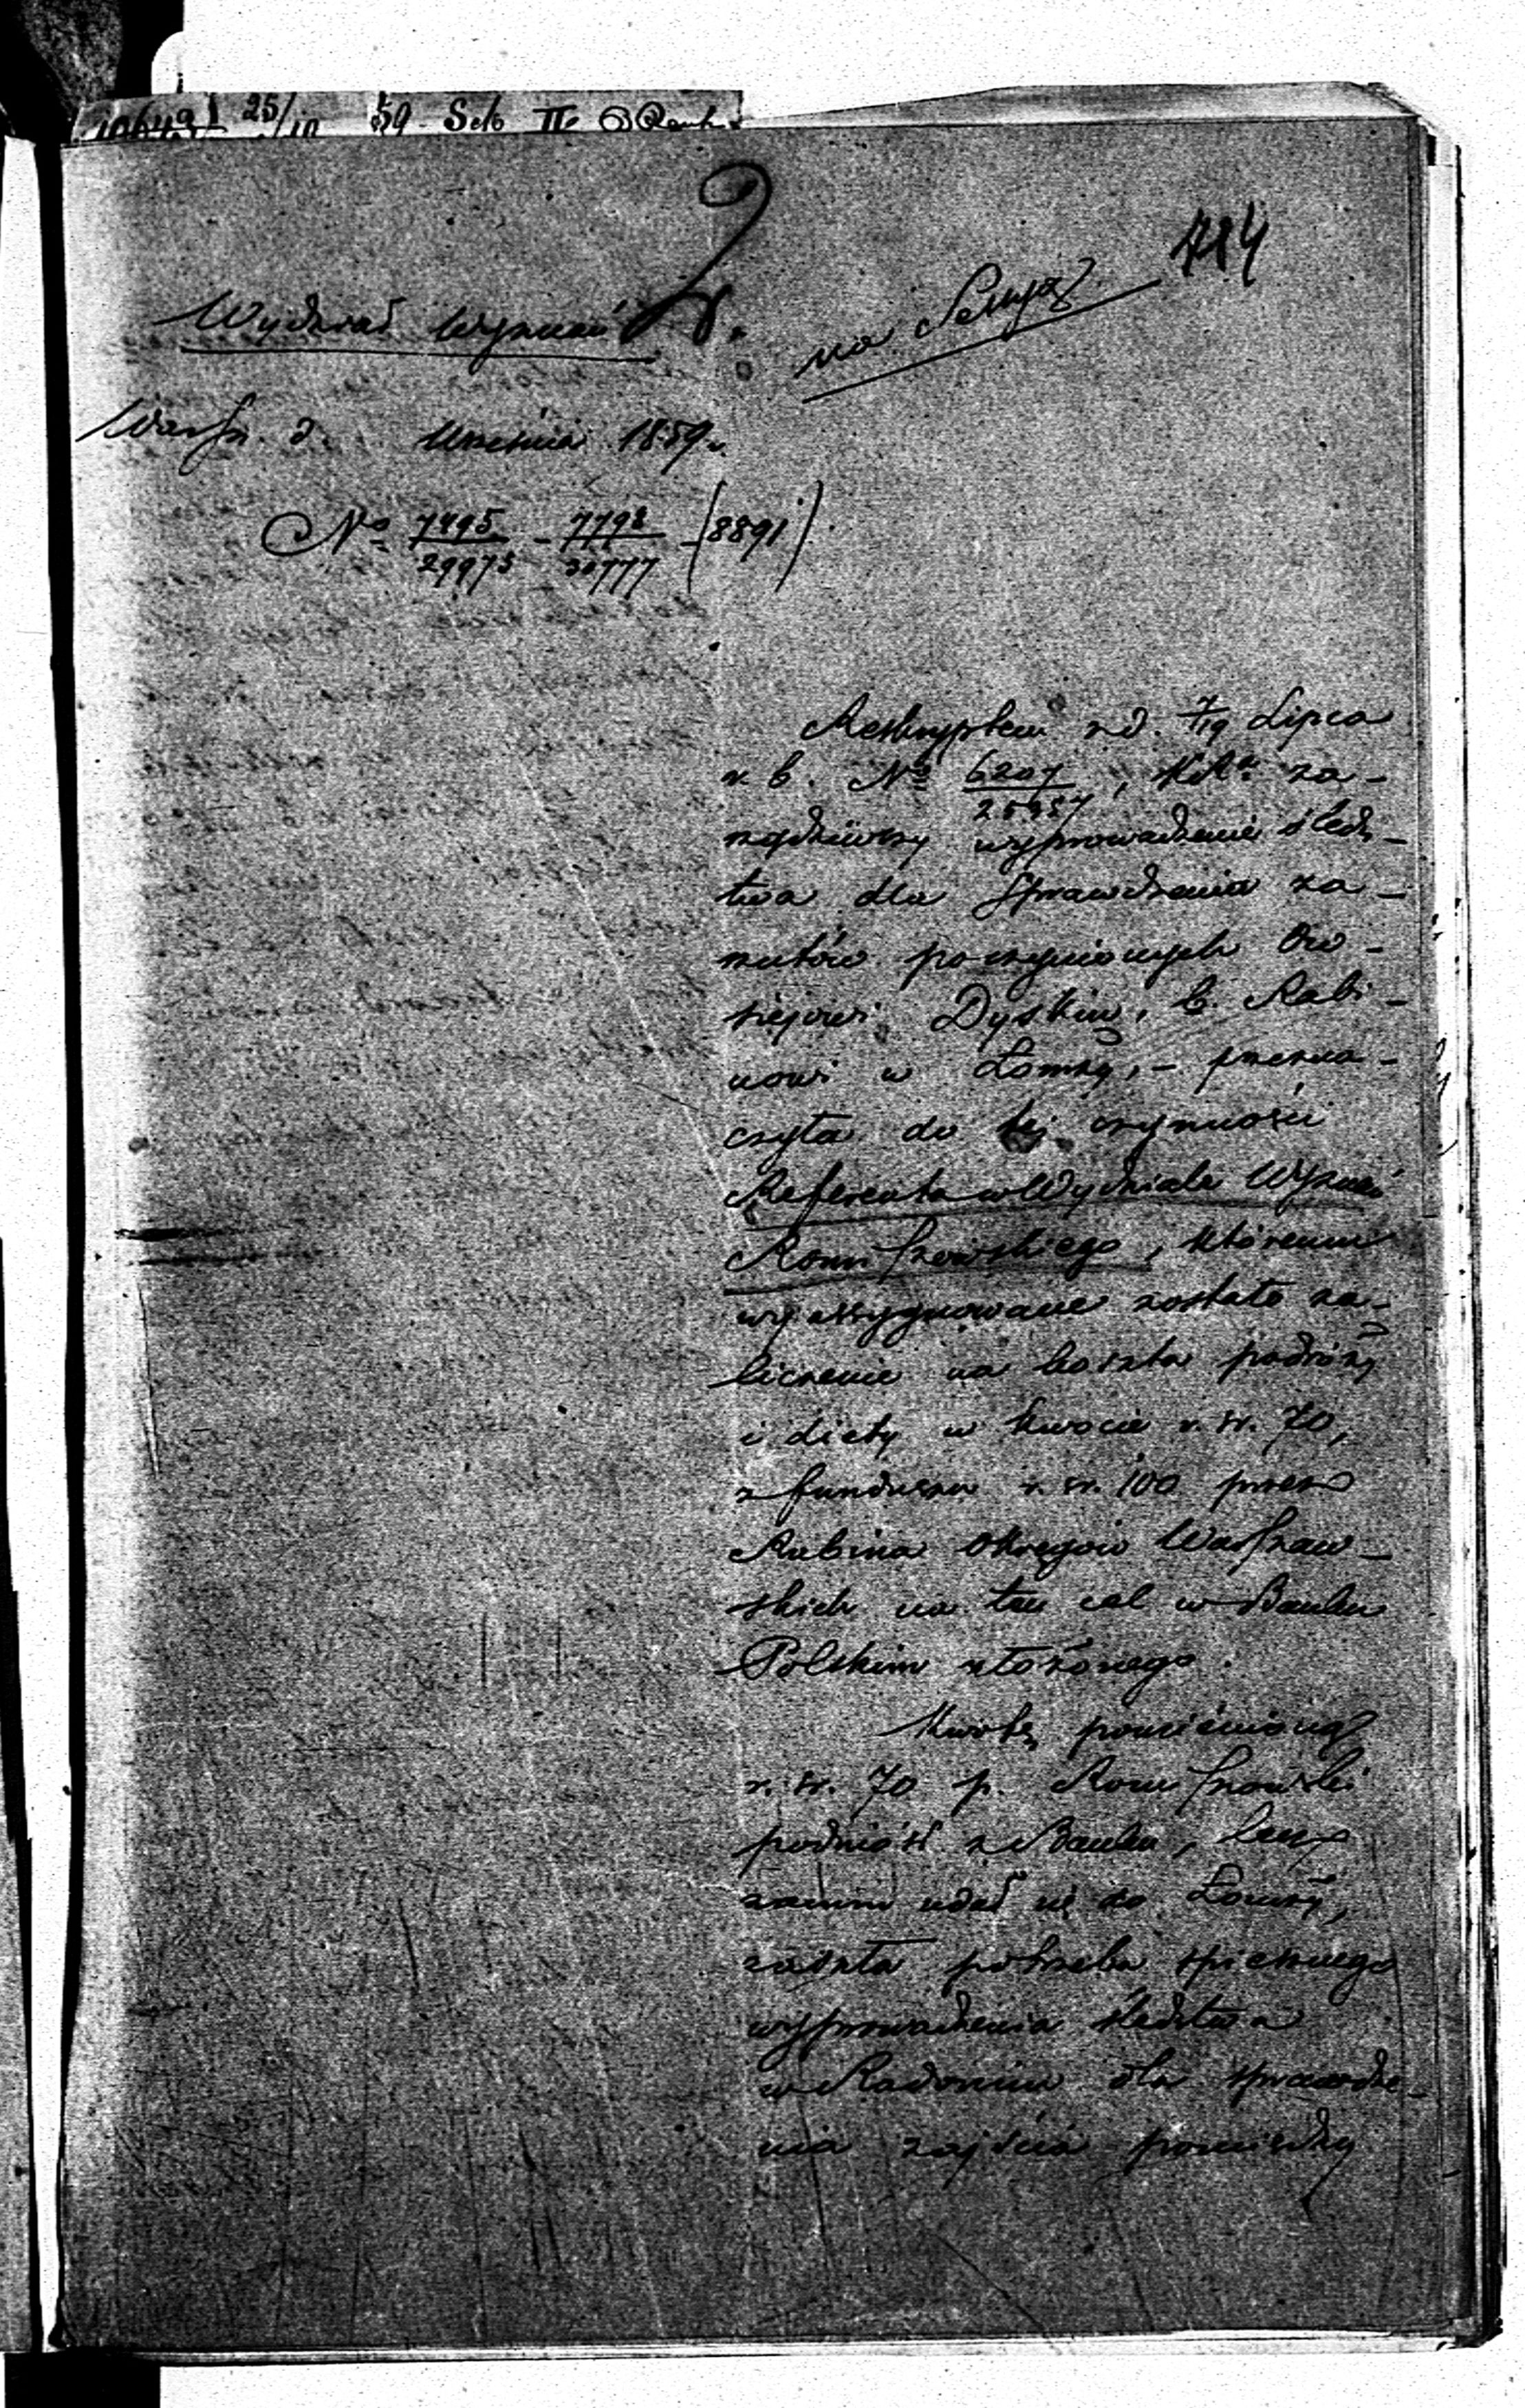 25/10 59 Sek II
484
Wydział Wyznań
na Sessyą
Warsz. d. Września 1859 r.
No 7495/29975 - 7798/30777 - (8891)
Reskryptem z d. 7/19 Lipca
r. b. No 6207/25957, K. R. za-
rządziwszy wyprowadzenie śledz-
twa dla sprawdzenia za-
rzutów poczynionych Ow-
siejowi Dyskin, b. Rabi-
nowi w Łomży, - przezna-
czyła do tej czynności
Referenta w Wydziale Wyznań
Romiszowskiego, któremu
wyassygnowane zostało za-
liczenie na koszta podróży
i diety w kwocie r. sr. 70,
z funduszu r. sr. 100 przez
Rabina Okręgów Warszaw-
skich na ten cel w Banku
Polskim złożonego.
Kwotę pomienioną
r. sr. 70 p. Romiszowski
podniósł z Banku, lecz
zanim udał się do Łomży,
zaszła potrzeba spiesznego
wyprowadzenia śledztwa
w Radominie dla sprawdze-
nia zajścia pomiędzy